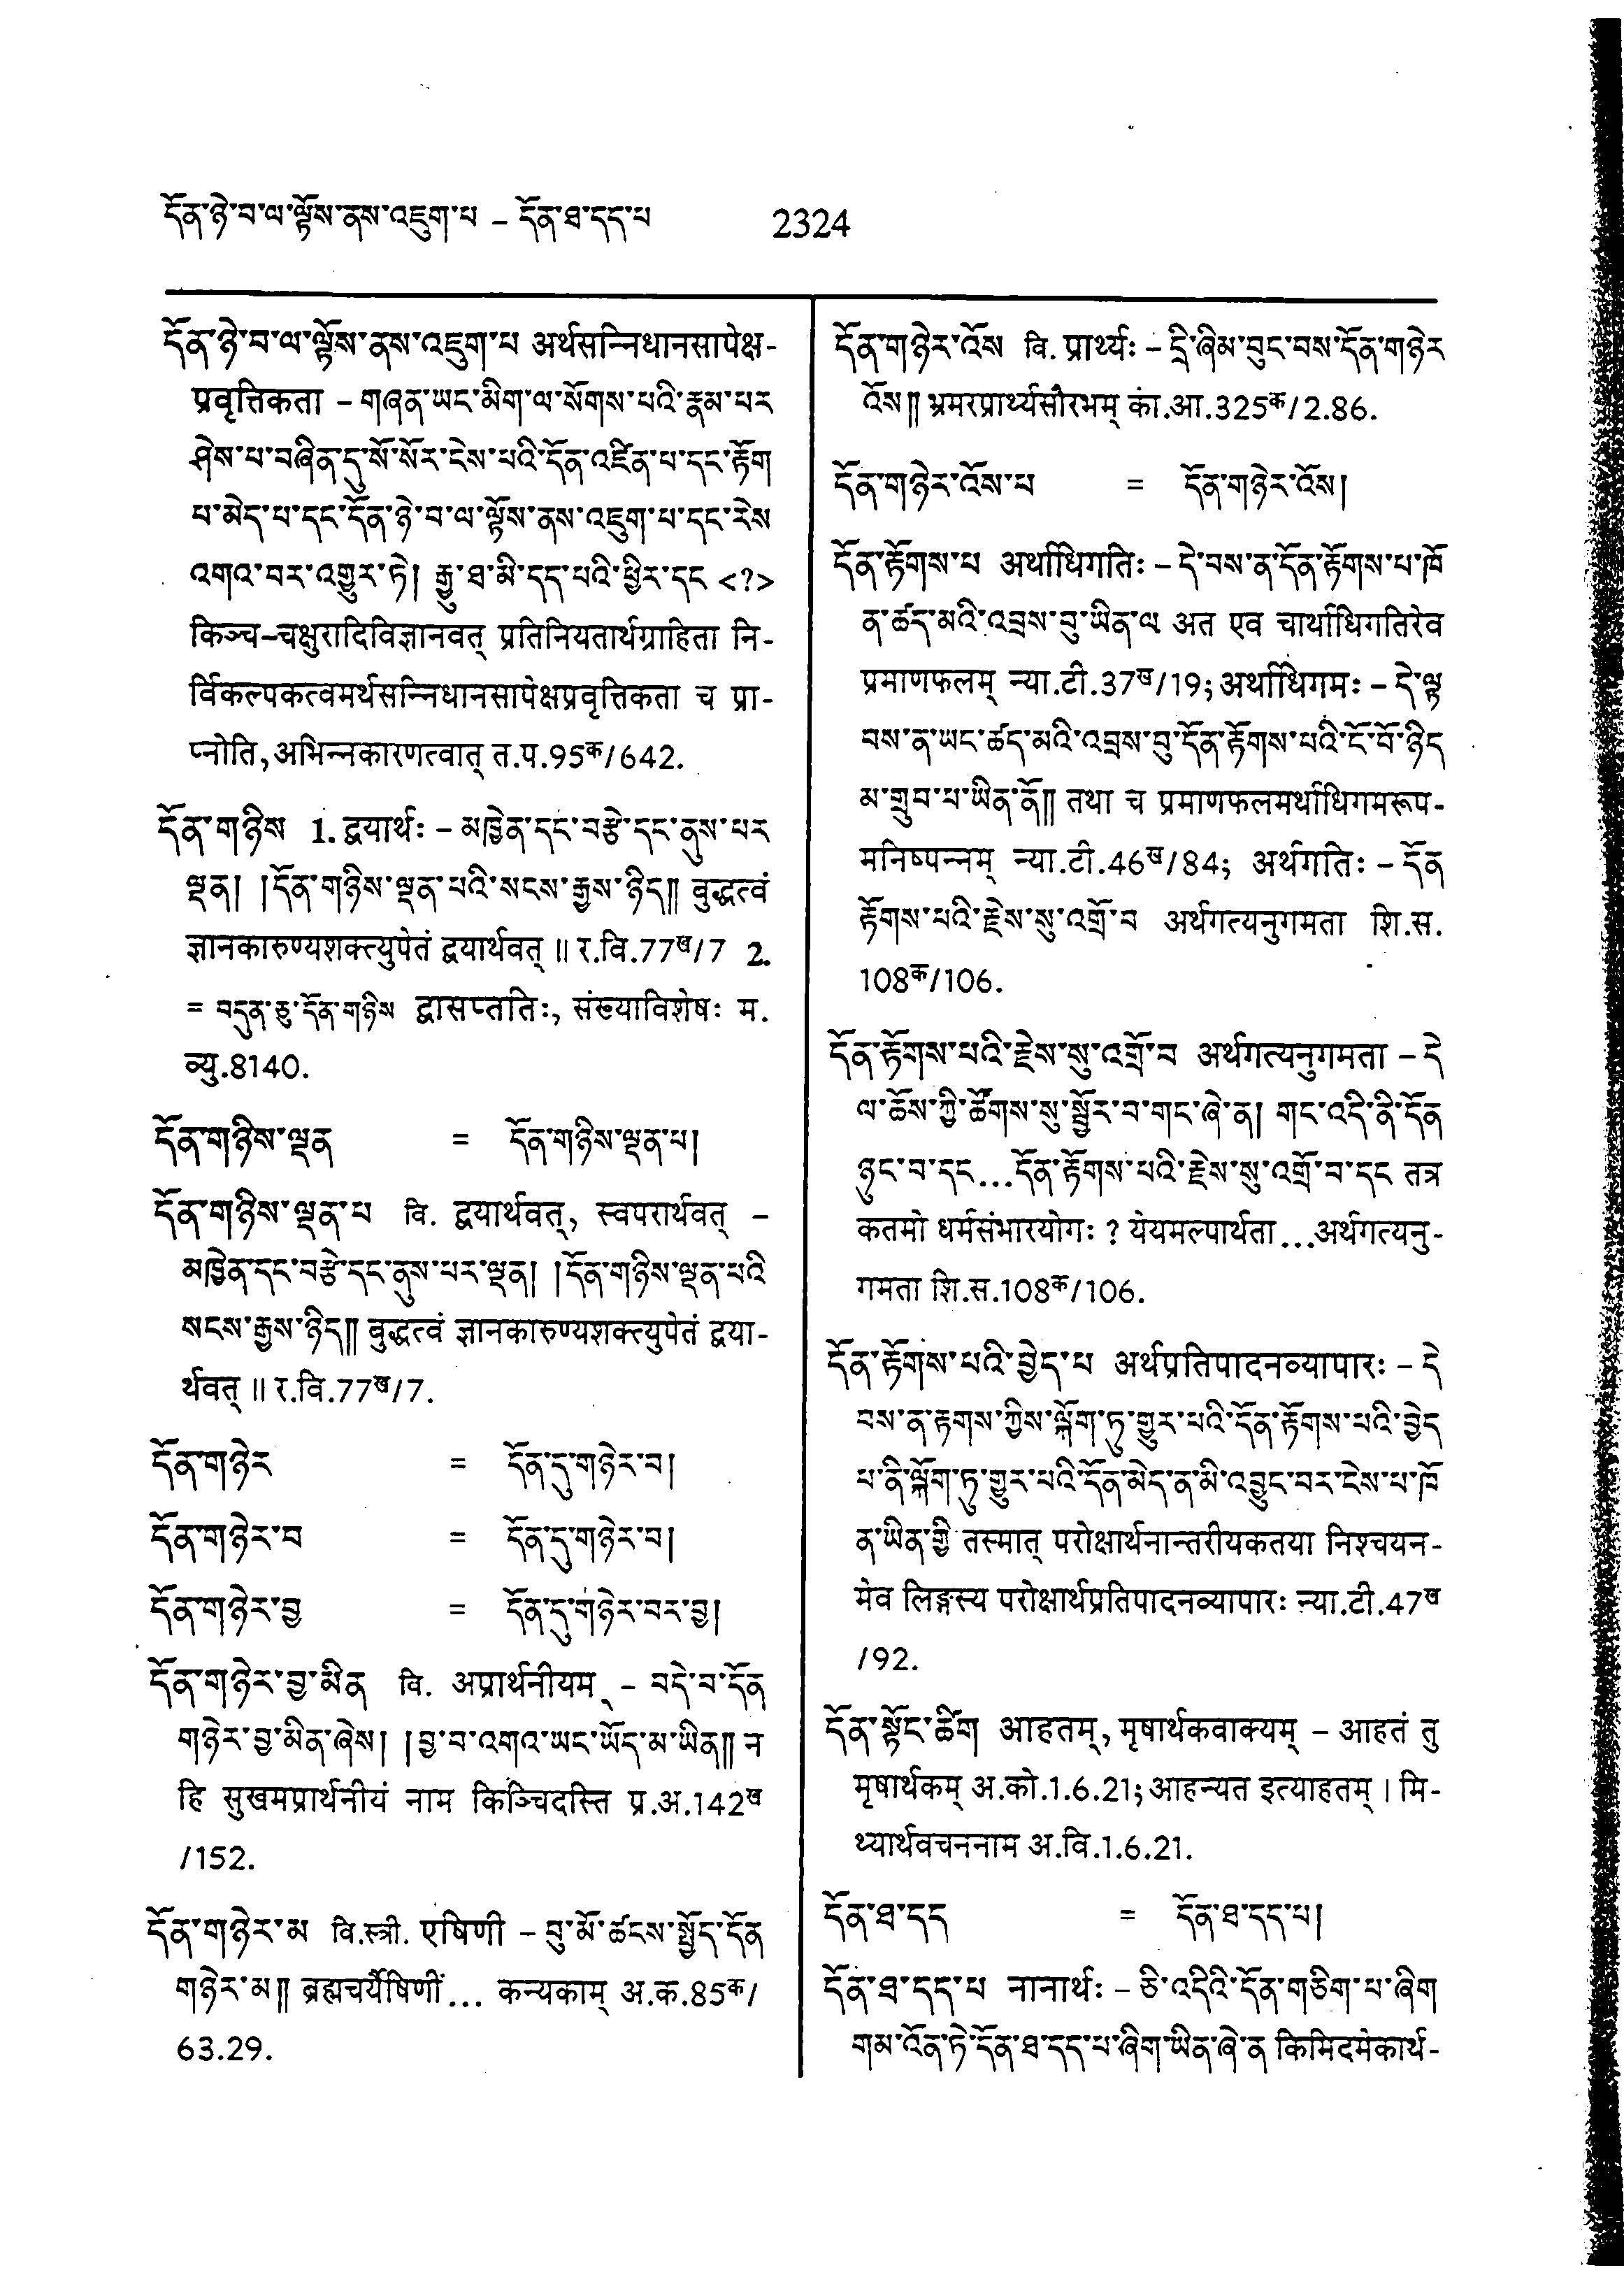 དོན་ཉེ་བ་ལ་ལྟོས་ནས་འཇུག་པ – དོན་ཐ་དད་པ 2324
དོན་ཉེ་བ་ལ་ལྟོས་ནས་འཇུག་པ अर्थसन्निधानसापेक्ष-
प्रवृत्तिकता – གཞན་ཡང་མིག་ལ་སོགས་པའི་རྣམ་པར
ཤེས་པ་བཞིན་དུ་སོ་སོར་ངེས་པའི་དོན་འཛིན་པ་དང་རྟོག
པ་མེད་པ་དང་དོན་ཉེ་བ་ལ་ལྟོས་ནས་འཇུག་པ་དང་རེས
འགའ་བར་འགྱུར་ཏེ། རྒྱུ་ཐ་མི་དད་པའི་ཕྱིར་དང <?>
किञ्च–चक्षुरादिविज्ञानवत् प्रतिनियतार्थग्राहिता नि-
र्विकल्पकत्वमर्थसन्निधानसापेक्षप्रवृत्तिकता च प्रा-
प्नोति, अभिन्नकारणत्वात् त.प.95क/642.
དོན་གཉིས 1. द्वयार्थः – མཁྱེན་དང་བརྩེ་དང་ནུས་པར
ལྡན། །དོན་གཉིས་ལྡན་པའི་སངས་རྒྱས་ཉིད༎ बुद्धत्वं
ज्ञानकारुण्यशक्त्युपेतं द्वयार्थवत् ॥ र.वि.77ख/7 2.
= བདུན་ཅུ་དོན་གཉིས द्वासप्ततिः, संख्याविशेषः म.
व्यु.8140.
དོན་གཉིས་ལྡན = དོན་གཉིས་ལྡན་པ།
དོན་གཉིས་ལྡན་པ वि. द्वयार्थवत्, स्वपरार्थवत् –
མཁྱེན་དང་བརྩེ་དང་ནུས་པར་ལྡན། །དོན་གཉིས་ལྡན་པའི
སངས་རྒྱས་ཉིད༎ बुद्धत्वं ज्ञानकारुण्यशक्त्युपेतं द्वया-
र्थवत् ॥ र.वि.77ख/7.
དོན་གཉེར = དོན་དུ་གཉེར་བ།
དོན་གཉེར་བ = དོན་དུ་གཉེར་བ།
དོན་གཉེར་བྱ = དོན་དུ་གཉེར་བར་བྱ།
དོན་གཉེར་བྱ་མིན वि. अप्रार्थनीयम् – བདེ་བ་དོན
གཉེར་བྱ་མིན་ཞེས། །བྱ་བ་འགའ་ཡང་ཡོད་མ་ཡིན༎ न
हि सुखमप्रार्थनीयं नाम किञ्चिदस्ति प्र.अ.142ख
/152.
དོན་གཉེར་མ वि.स्त्री. एषिणी – བུ་མོ་ཚངས་སྤྱོད་དོན
གཉེར་མ༎ ब्रह्मचर्यैषिणीं... कन्यकाम् अ.क.85क/
63.29.
དོན་གཉེར་འོས वि. प्रार्थ्यः – དྲི་ཞིམ་བུང་བས་དོན་གཉེར
འོས༎ भ्रमरप्रार्थ्यसौरभम् का.आ.325क/2.86.
དོན་གཉེར་འོས་པ = དོན་གཉེར་འོས།
དོན་རྟོགས་པ अर्थाधिगतिः – དེ་བས་ན་དོན་རྟོགས་པ་ཁོ
ན་ཚད་མའི་འབྲས་བུ་ཡིན་ལ अत एव चार्थाधिगतिरेव
प्रमाणफलम् न्या.टी.37ख/19; अर्थाधिगमः – དེ་ལྟ
བས་ན་ཡང་ཚད་མའི་འབྲས་བུ་དོན་རྟོགས་པའི་ངོ་བོ་ཉིད
མ་གྲུབ་པ་ཡིན་ནོ༎ तथा च प्रमाणफलमर्थाधिगमरूप-
मनिष्पन्नम् न्या.टी.46ख/84; अर्थगतिः – དོན
རྟོགས་པའི་རྗེས་སུ་འགྲོ་བ अर्थगत्यनुगमता शि.स.
108क/106.
དོན་རྟོགས་པའི་རྗེས་སུ་འགྲོ་བ अर्थगत्यनुगमता – དེ
ལ་ཆོས་ཀྱི་ཚོགས་སུ་སྦྱོར་བ་གང་ཞེ་ན། གང་འདི་ནི་དོན
ཉུང་བ་དང...དོན་རྟོགས་པའི་རྗེས་སུ་འགྲོ་བ་དང तत्र
कतमो धर्मसंभारयोगः ? येयमल्पार्थता...अर्थगत्यनु-
गमता शि.स.108क/106.
དོན་རྟོགས་པའི་བྱེད་པ अर्थप्रतिपादनव्यापारः – དེ
བས་ན་རྟགས་ཀྱིས་ལྐོག་ཏུ་གྱུར་པའི་དོན་རྟོགས་པའི་བྱེད
པ་ནི་ལྐོག་ཏུ་གྱུར་པའི་དོན་མེད་ན་མི་འབྱུང་བར་ངེས་པ་ཁོ
ན་ཡིན་གྱི तस्मात् परोक्षार्थनान्तरीयकतया निश्चयन-
मेव लिङ्गस्य परोक्षार्थप्रतिपादनव्यापारः न्या.टी.47ख
/92.
དོན་སྟོང་ཚིག आहतम्, मृषार्थकवाक्यम् – आहतं तु
मृषार्थकम् अ.को.1.6.21; आहन्यत इत्याहतम् । मि-
थ्यार्थवचननाम अ.वि.1.6.21.
དོན་ཐ་དད = དོན་ཐ་དད་པ།
དོན་ཐ་དད་པ नानार्थः – ཅི་འདིའི་དོན་གཅིག་པ་ཞིག
གམ་འོན་ཏེ་དོན་ཐ་དད་པ་ཞིག་ཡིན་ཞེ་ན किमिदमेकार्थ-